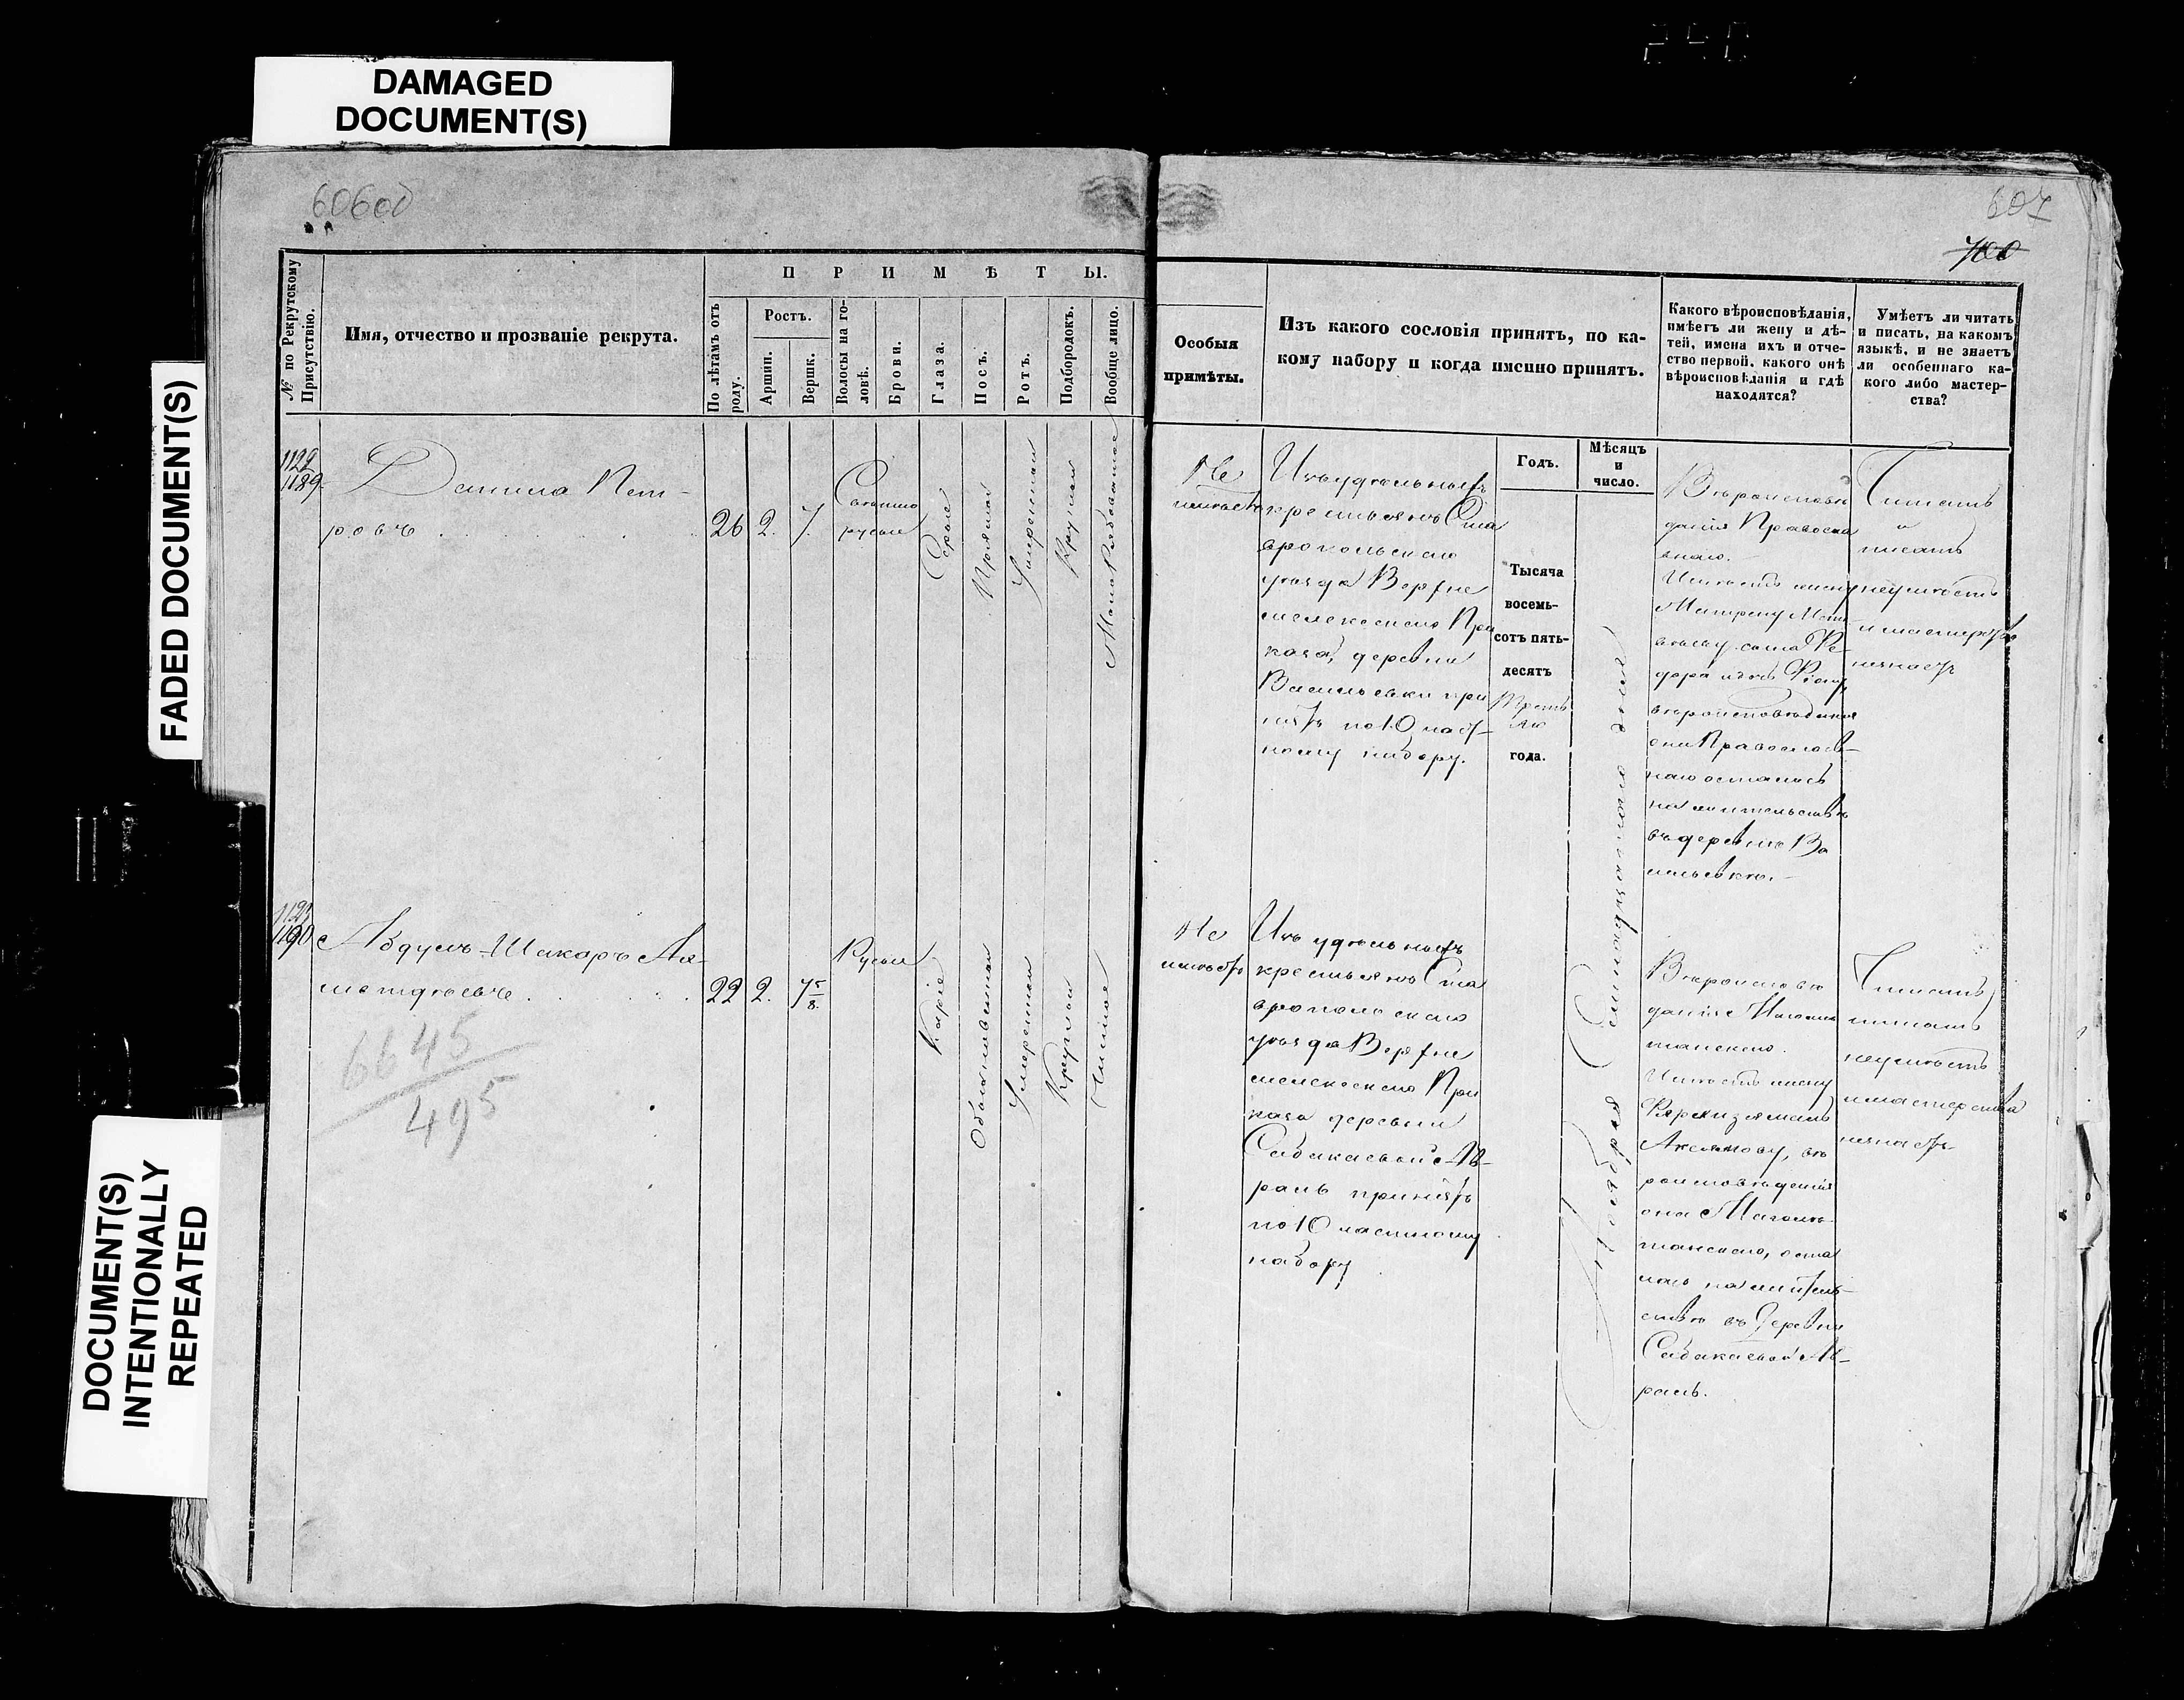 DAMAGED
DOCUMENT(S)
FADED DOCUMENT(S)
DOCUMENT(S)
INTENTIONALLY
REPEATED
606об
607
700
№ по Рекрутскому
Присутствію.
Имя, отчество и прозваніе рекрута.
ПРИМѢТЫ.
По лѣтамъ отъ
роду.
Ростъ.
Аршин.
Вершк.
Волосы на го-
ловѣ.
Брови.
Глаза.
Носъ.
Ротъ.
Подбородокъ.
Вообще лицо.
Особыя
примѣты.
Изъ какого сословія принятъ, по ка-
кому набору и когда имѣнно принятъ.
Годъ.
Мѣсяцъ
и
число.
Какого вѣроисповѣданія,
имѣетъ ли жену и дѣ-
тей, имена ихъ и отче-
ство первой, какого онѣ
вѣроисповѣданія и гдѣ
находятся?
Умѣетъ ли читать
и писать, на какомъ
языкѣ, и не знаетъ
ли особеннаго ка-
кого либо мастер-
ства?
1122
1189
Данила Пет-
ровъ
26
2.
7.
Свѣтло
русые
Серые
Прямой
Умеренной
Круглой
Не
имѣетъ
Изъ удѣльныхъ
крестьянъ Ста
вропольскаго
уѣзда Верхне
мелекескаго При
каза, деревни
Васильевки при
нятъ по 10 част-
ному набору.
Тысяча
восемь-
сотъ пять-
десятъ
Третьяго
года.
Ноября Семнадцатаго дня
Вѣроисповѣ
данія Правосла
внаго.
Имѣетъ жену
Матрену Мат
вѣеву, сына Ѳе
дора
вѣроисповѣданія
они Православ-
наго остались
на жительствѣ
въ деревнѣ Ва
сильевкѣ.
Читать
и
писать
неумѣетъ
и мастерства
незнаетъ
1190
Абдулъ-Шакаръ Ах-
метдѣевъ
22
2.
7 5/8
Русые
Каріе
Обыкновенной
Умеренной
Круглой
Чистое
Не
имѣетъ
Изъ удѣльныхъ
крестьянъ Ста
вропольскаго
уѣзда Верхне
мелекескаго При
каза деревни
Сабакаевой Ав-
раль принятъ
по 10 частному
набору
Вѣроисповѣ
данія Магоме
танскаго.
Имѣетъ жену
вѣ
роисповѣданія
она Магоме-
танскаго, оста
лась на жител-
ствѣ въ деревни
Сабакаевой Ав-
раль.
Читать
писать
неумѣетъ
и мастерства
незнаетъ
6645
495